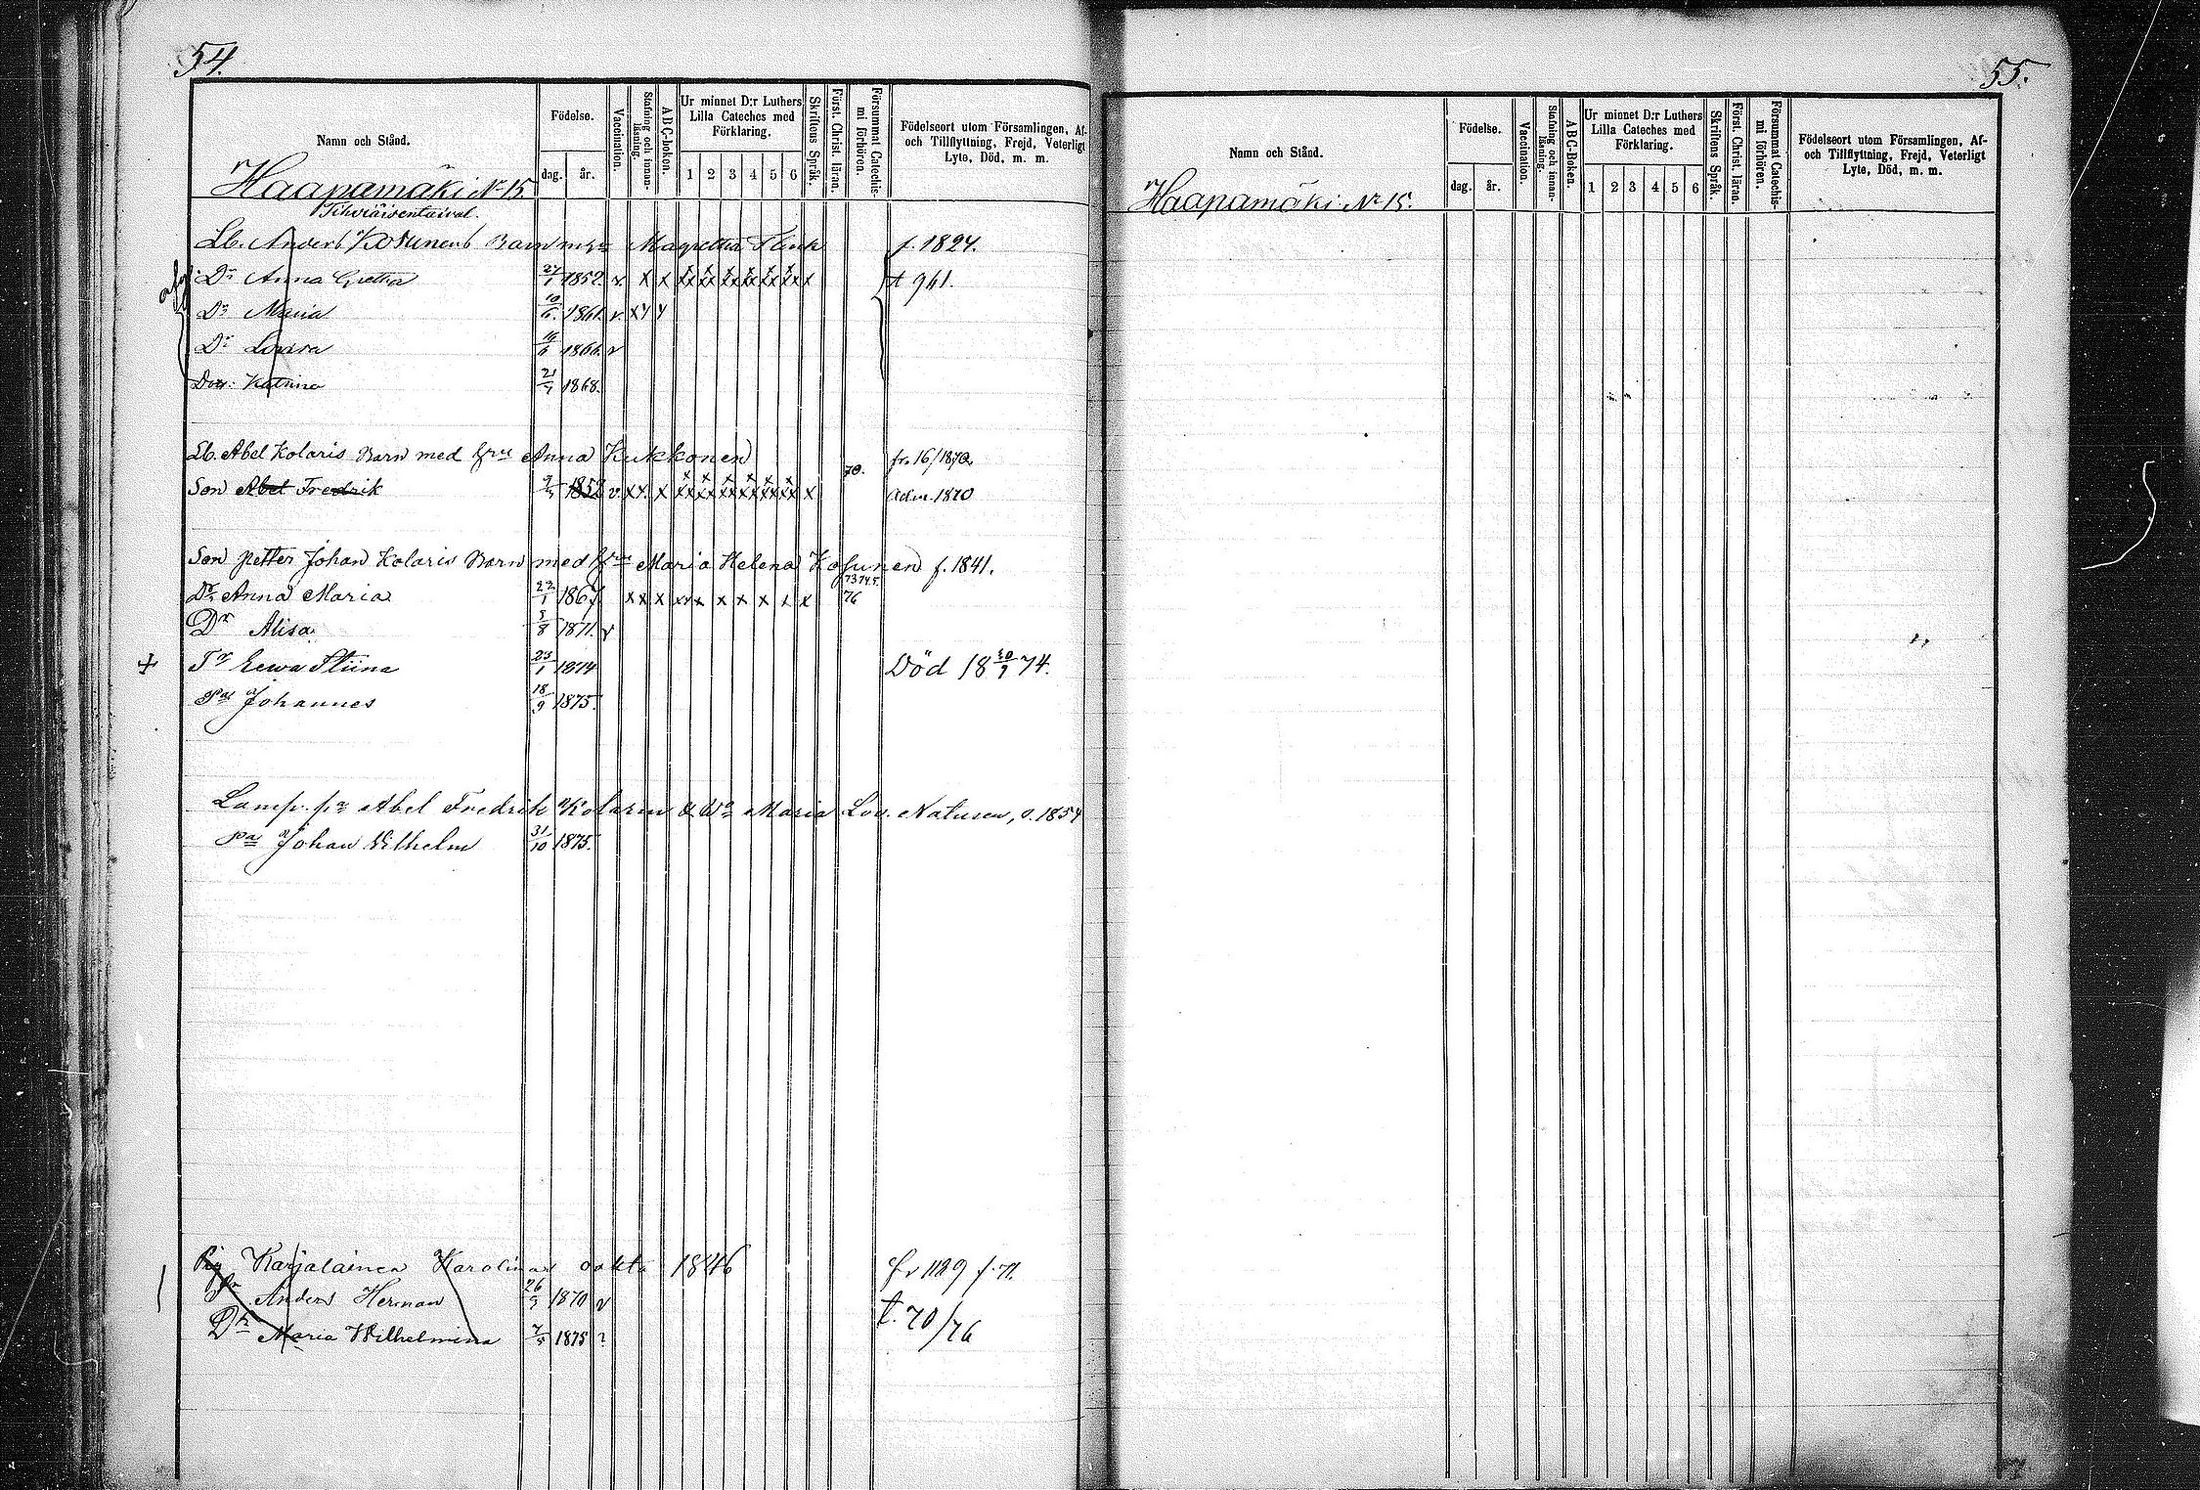 54.
Namn och Stånd.
Födelse.
dag. år.
Vaccination.
Stafning och innan-läsning.
ABC-boken.
Ur minnet D:r Luthers
Lilla Cateches med
Förklaring.
1 2 3 4 5 6
Skriftens Språk.
Först. Christ. läran.
Försummat Catechis-mi förhören.
Födelseort utom Församlingen, Af-
och Tillflyttning, Frejd, Veterligt
Lyte, Död, m. m.
Haapamäki No 15.
Lb. Anders Kosunens Barn m. hru Magretha f. 1824.
Dr Anna Gretha 27/1 1852. v. x x t 941.
Dr Maria 10/6 1861. v.
Dr Lovisa 16/6 1866. v
Dotr. Katrina 21/9 1868.
Lb. Abel Kolaris Barn med hru Anna Kukkonen fr. 16/1870.
Son Abel Fredrik 1852 v. 70. adm. 1870
Son Petter Johan Kolaris Barn med hru Maria Helena Kosunen f. 1841.
Dr Anna Maria 22/1 1867. 76
Dr Alisa. 5/8 1871. v
+ Tr Eewa Stiina 23/1 1874 Död 18 30/9 74.
Pa Johannes 18/9 1875.
Lamp. pa Abel Fredrik Kolarin & Wo Maria Lov. Natunen, s. 1854
Pa Johan Wilhelm 31/10 1875.
Pig Karjalainen Karolina 1846 fr 1129 f. 71.
Anders Herman 26/9 1870 v t. 70/76
Dr Maria Wilhelmina 1875 ?
55.
Namn och Stånd.
Födelse.
dag. år.
Vaccination.
Stafning och innan-läsning.
ABC-Boken.
Ur minnet D:r Luthers
Lilla Cateches med
Förklaring.
1 2 3 4 5 6
Skriftens Språk.
Först. Christ. läran.
Försummat Catechis-mi förhören.
Födelseort utom Församlingen, Af-
och Tillflyttning, Frejd, Veterligt
Lyte, Död, m. m.
Haapamäki No 15.